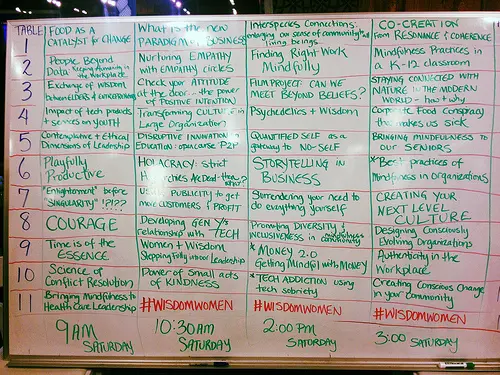 TABLE
1
FOOD AS A
CATALYST for CHANGE
What is the new
PARADIGM BUSINESS
Interspecies Connections:
enlarging our sense of community
living beings
CO-CREATION
from RESONANCE & COHERENCE
2
People Beyond
Data Keeping Humanity in
the Workplace
Nurturing EMPATHY
with EMPATHY circles
Finding Right Work
Mindfully
Mindfulness Practices in
a K-12 classroom
3
Exchange of WISDOM
between ELDERS &
Check your ATTITUDE
at the door... the power
of POSITIVE INTENTION
FILM PROJECT: CAN WE
MEET BEYOND BELIEFS?
STAYING CONNECTED WITH
NATURE in the MODERN
WORLD - how & why
4
Impact of tech products
+ services on YOUTH
Transforming CULTURE in
Large Organizations
Psychedelics + Wisdom
Corporate Food Conspiracy
that makes us sick
5
Contemplative + Ethical
Dimensions of Leadership
DISRUPTIVE INNOVATION in
EDUCATION: opensource P2P
QUANTIFIED SELF as a
gateway to NO-SELF
BRINGING MINDFULNESS to
our SENIORS
6
Playfully
Productive
HOLACRACY: strict
Hierarchies Are Dead
STORYTELLING in
BUSINESS
*Best practices of
Mindfulness in organizations
7
"Enlightenment" before
SINGULARITY" ?!??
PUBLICITY to get
more CUSTOMERS & PROFIT
Surrendering your need to
do everything yourself
CREATING YOUR
NEXT LEVEL
CULTURE
8
COURAGE
Developing GEN Y's
relationship with TECH
Promoting DIVERSITY +
INCLUSIVENESS in mindfulness
community
Designing Consciously
Evolving Organizations
9
Time is of the
ESSENCE
Women + Wisdom
Stepping fully into our Leadership
* MONEY 2.0
Getting Mindful with MONEY
Authenticity in the
Workplace
10
Science of
Conflict Resolution
Power of Small acts
of KINDNESS
*TECH ADDICTION using
tech sobriety
Creating Conscious Change
in your Community
11
Bringing Mindfulness to
Health Care Leadership
#WISDOMWOMEN
#WISDOMWOMEN
#WISDOMWOMEN
9AM
SATURDAY
10:30AM
SATURDAY
2:00 PM
SATURDAY
3:00 SATURDAY